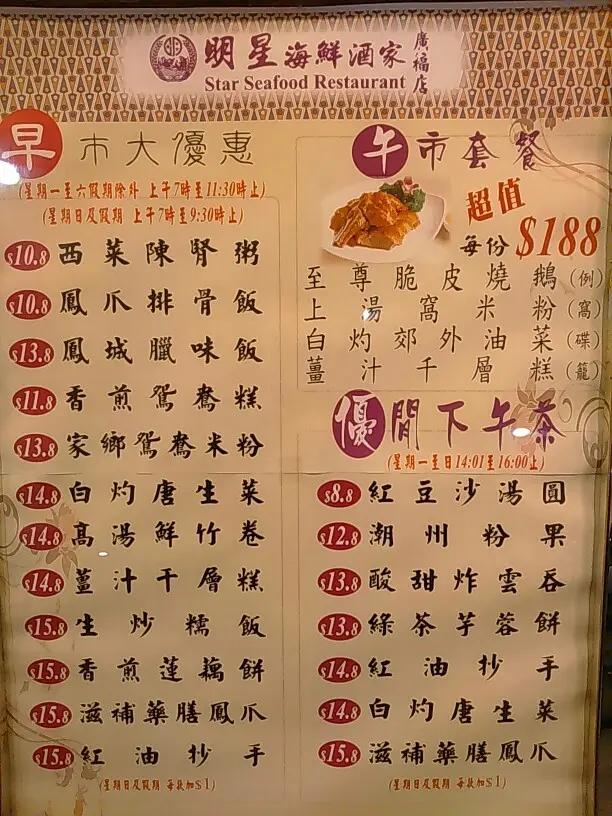 明星海鮮酒家 廣福店
Star Seafood Restaurant
早市大優惠
(星期一至六假期除外 上午7時至11:30時止)
(星期日及假期 上午7時至9:30時止)
$10.8 西菜陳腎粥
$10.8 鳳爪排骨飯
$13.8 鳳城臘味飯
$11.8 香煎鴛鴦糕
$13.8 家鄉鴛鴦米粉
$14.8 白灼唐生菜
$14.8 高湯鮮竹卷
$14.8 薑汁千層糕
$15.8 生炒糯飯
$15.8 香煎蓮藕餅
$15.8 滋補藥膳鳳爪
$15.8 紅油抄手
(星期日及假期 每款加$1)
午市套餐
超值
每份 $188
至尊脆皮燒鵝(例)
上湯窩米粉(窩)
白灼郊外油菜(碟)
薑汁千層糕(籠)
優閒下午茶
(星期一至日14:01至16:00止)
$8.8 紅豆沙湯圓
$12.8 潮州粉果
$13.8 酸甜炸雲吞
$13.8 綠茶芋蓉餅
$14.8 紅油抄手
$14.8 白灼唐生菜
$15.8 滋補藥膳鳳爪
(星期日及假期 每款加$1)